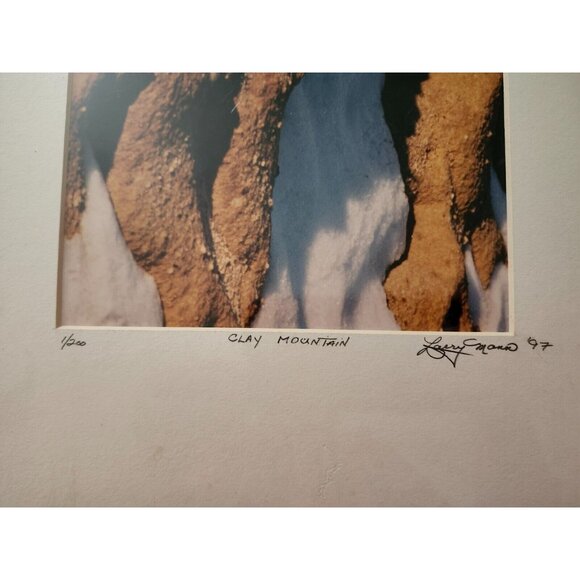 1/200 CLAY MOUNTAIN Larry Mann '97